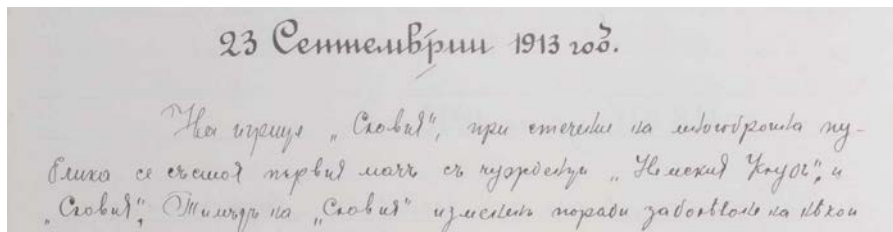 23 Септемврий 1913 год.
На игрище „Славия", при стечение на многобройна пу-
блика се състоя първия мачъ съ чужденци „Немския Клубъ", и
„Славия", Тимътъ на „Славия" изменен поради заболѣване на нѣкои